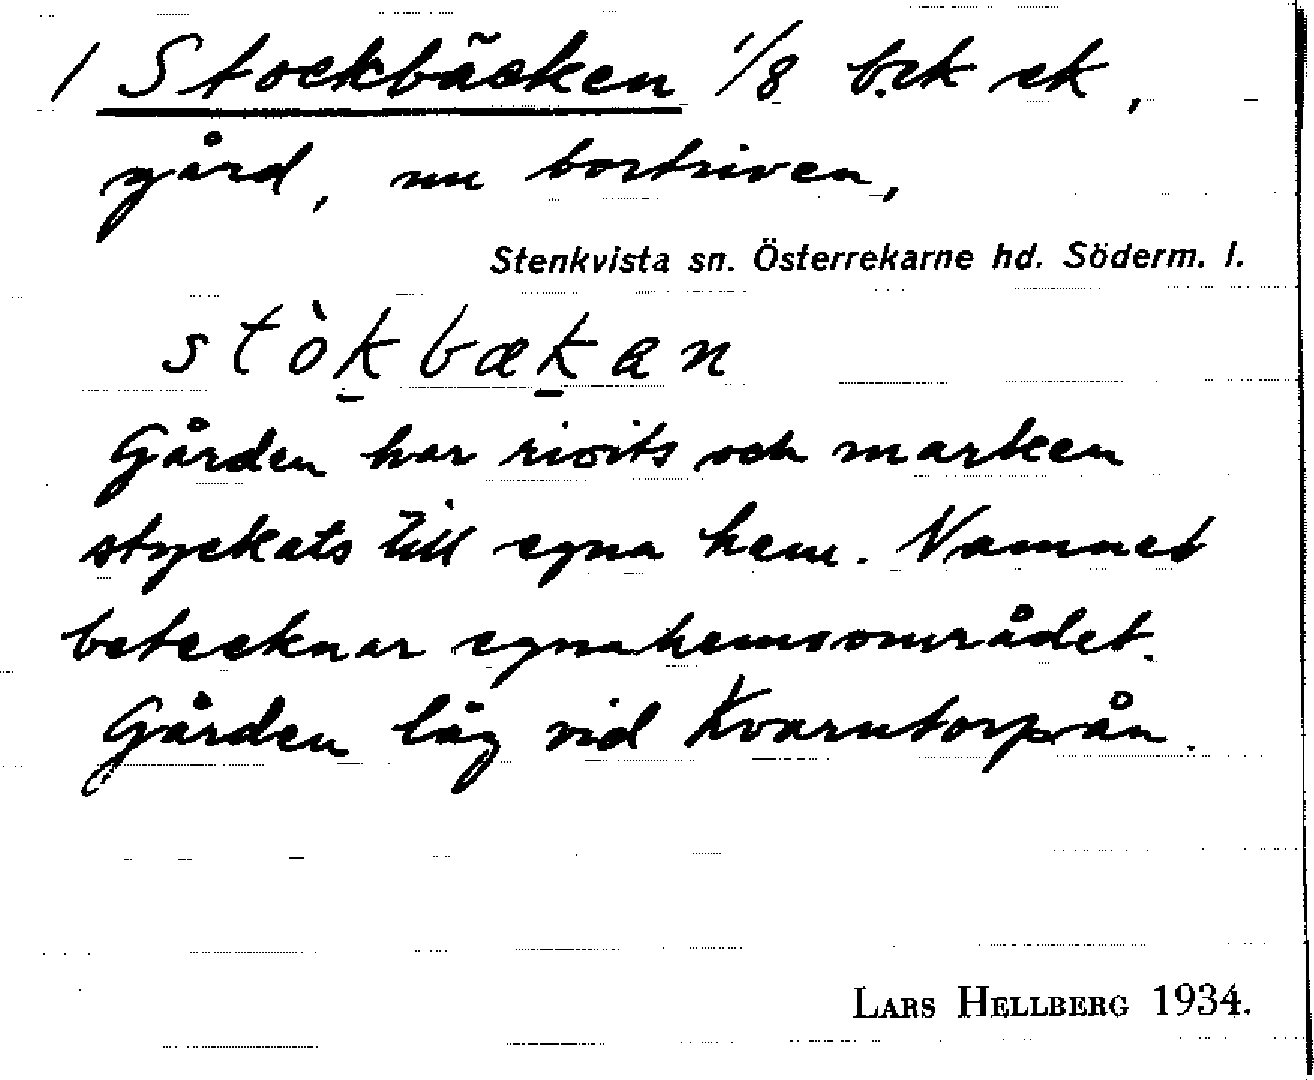 1 Stockbäcken 1/8 b.ck ck,
gård, nu bortriven,
Stenkvista sn. Österrekarne hd. Söderm. l.
stòkbækan
Gården har rivits och marken
styckats till egna hem. Namnet
betecknar egnahemsområdet.
Gården låg vid Kvarntorpån.
LARS HELLBERG 1934.